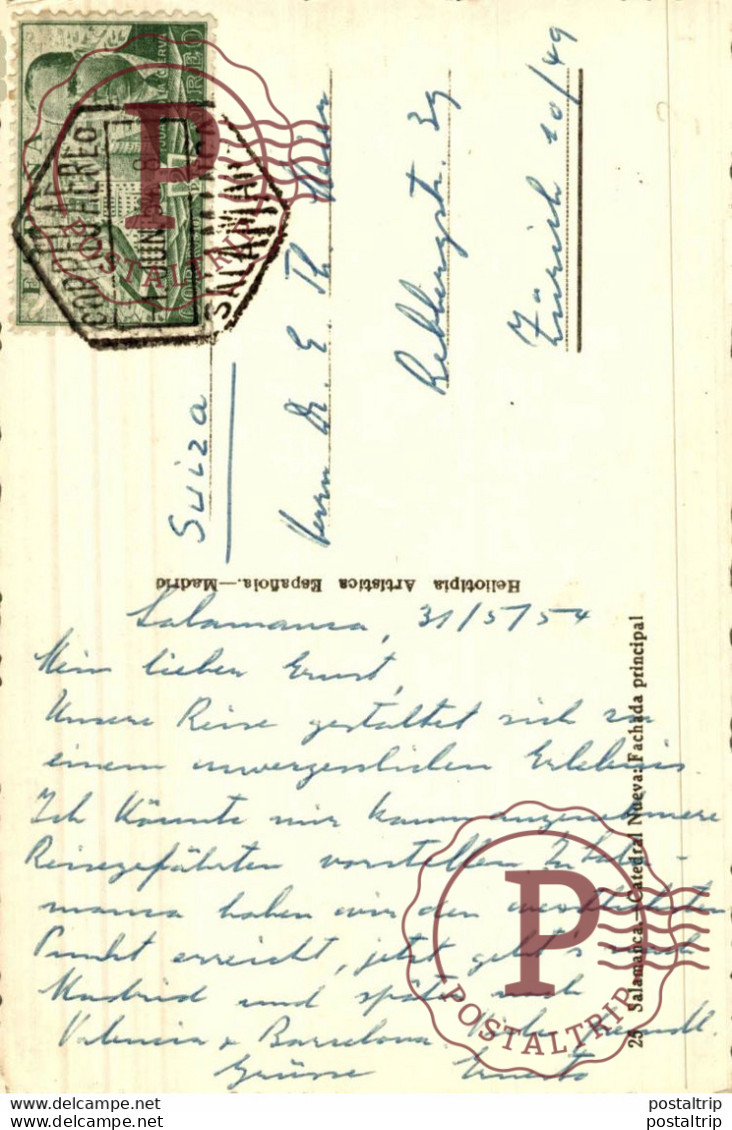 Salamanca, 31/5/54
Mein lieber Ernst,
Unsere Reise gestaltet sich zu
einem unvergesslichen Erlebnis
Ich könnte mir kaum angenehmere
Reisegefährten vorstellen. In Sala-
manca haben wir den westlichsten
Punkt erreicht, jetzt geht's nach
Madrid und später nach
Valencia & Barcelona. Viele freundl.
Grüsse Ernesto
Suiza
Herrn Dr. E. Th.
Rebbergstr. 39
Zürich 10/49
Heliotipia Artística Española.—Madrid
25 Salamanca.—Catedral Nueva: Fachada principal
CORREO AEREO
JUN
SALAMANCA
ESPAÑA
CORREO
P
POSTALTRIP
P
POSTALTRIP
postaltrip
postaltrip